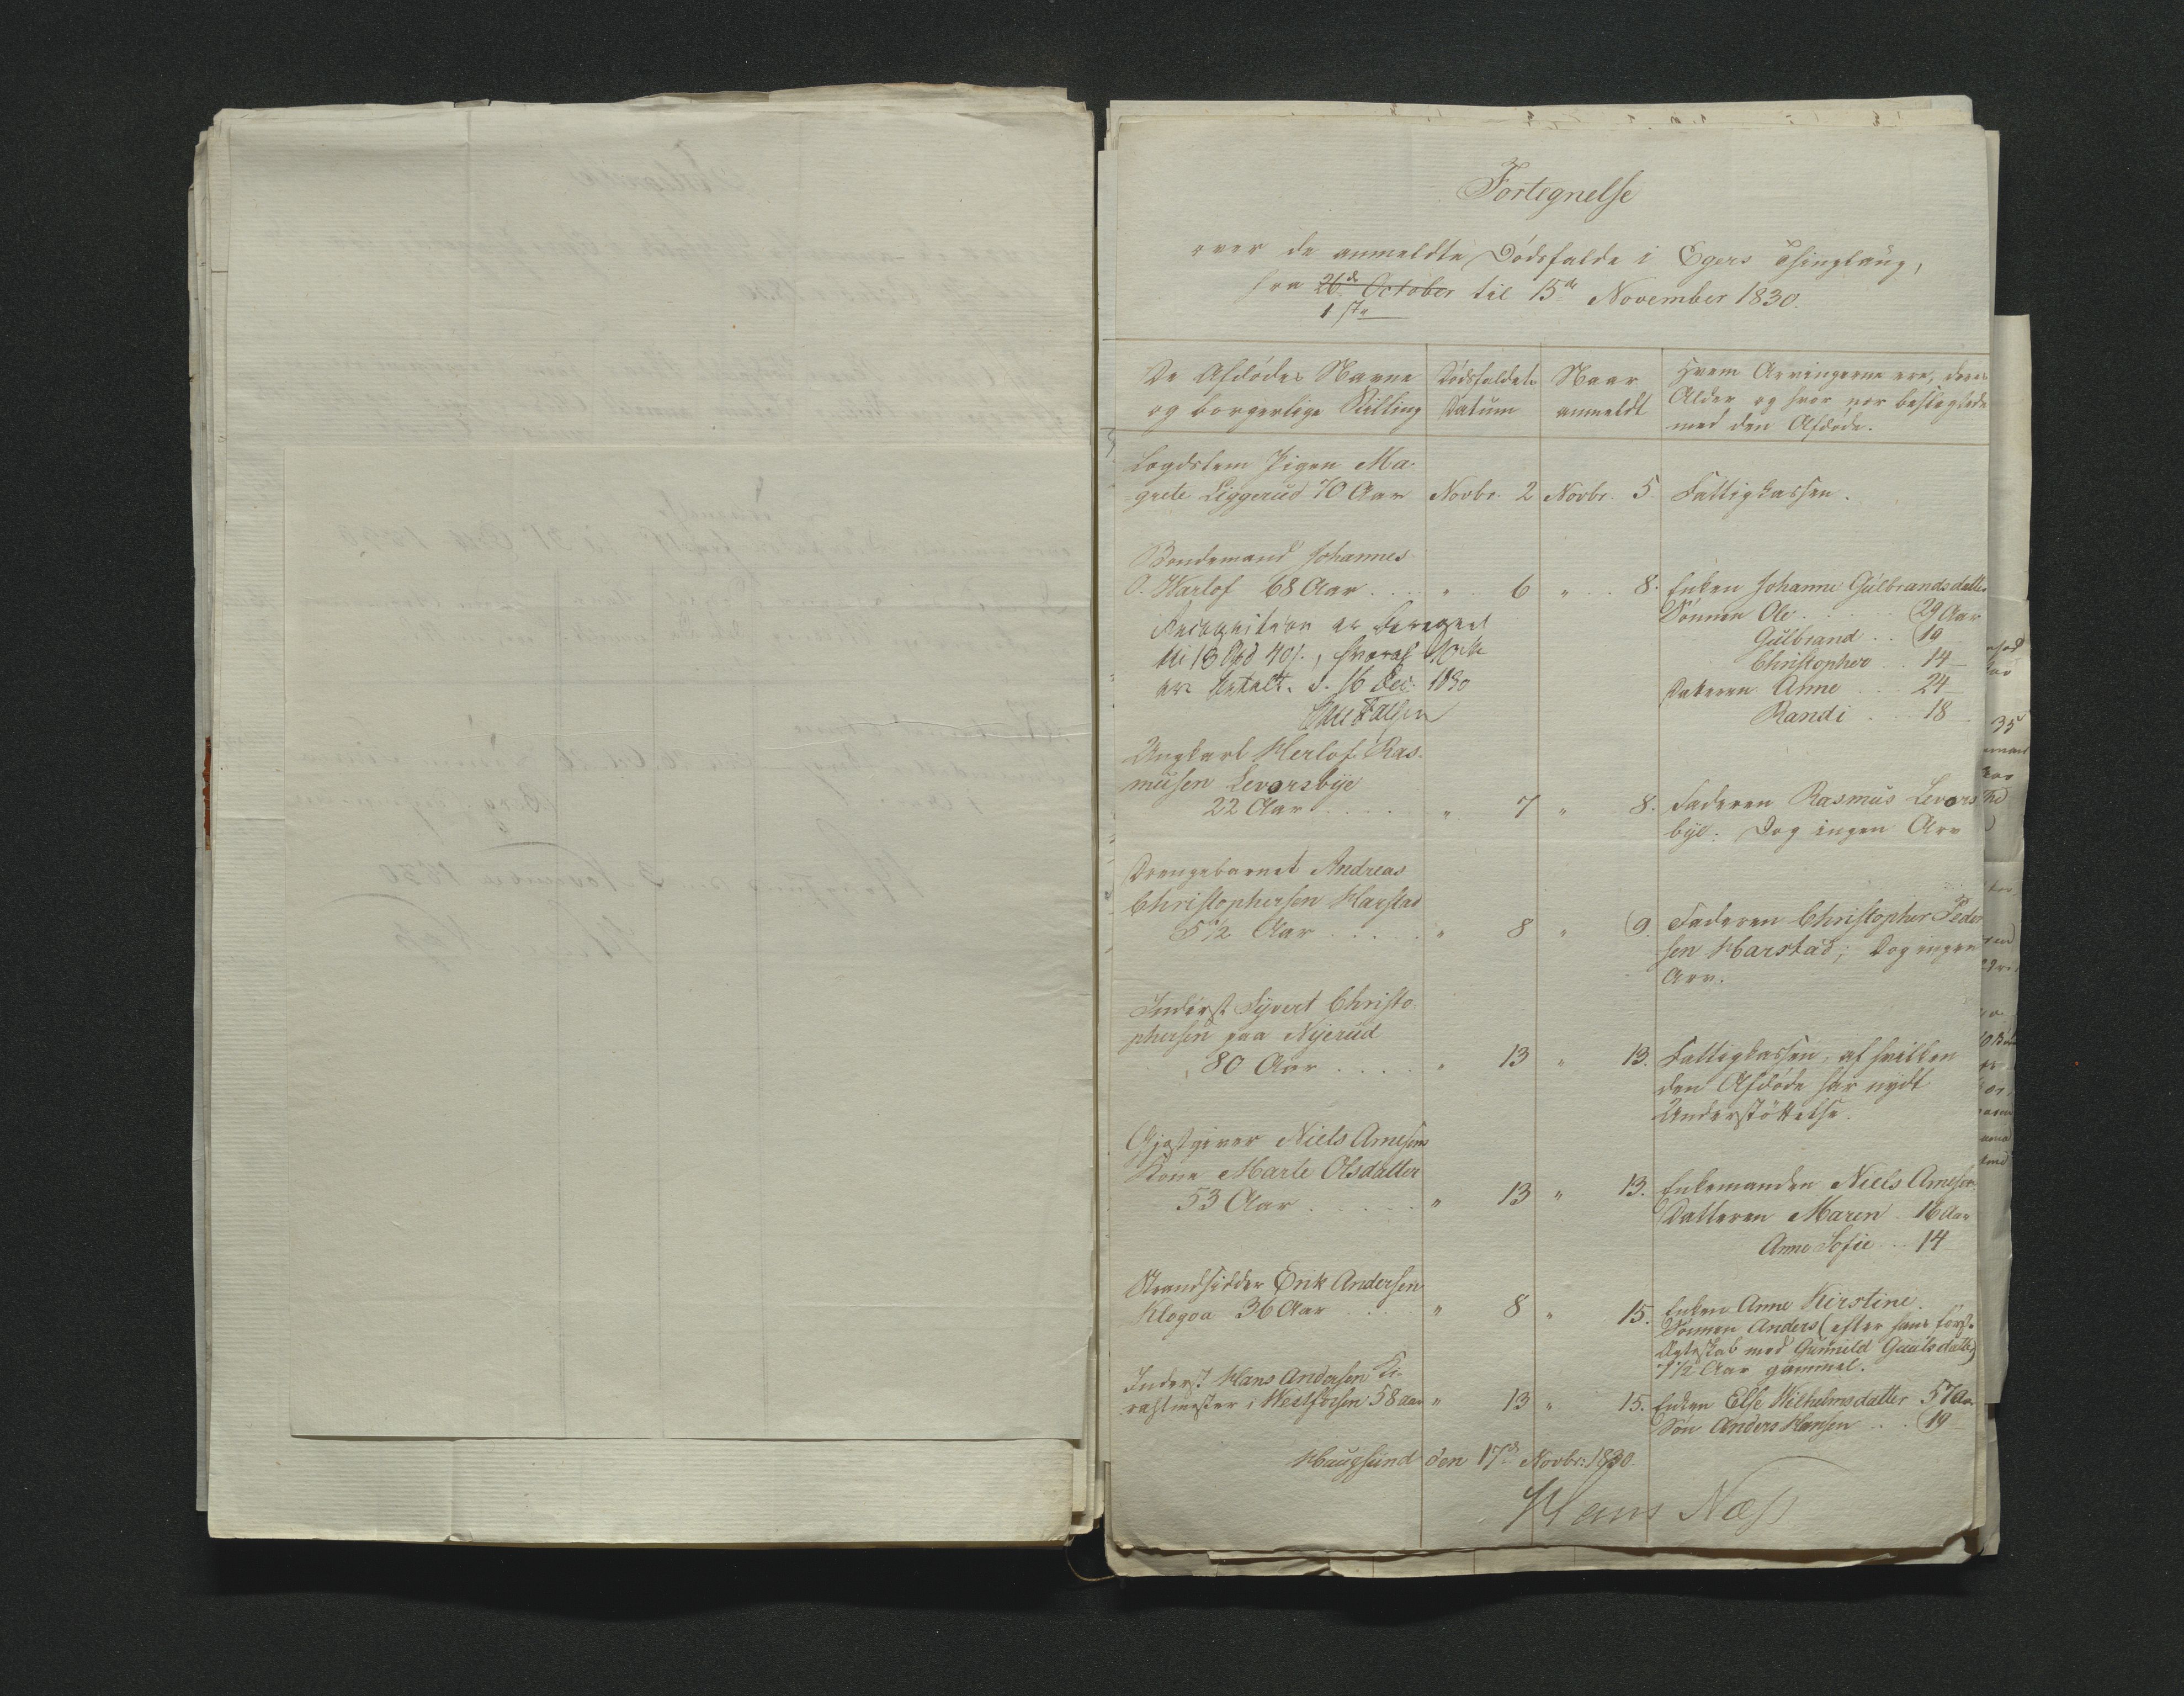 Fortegnelse
over de anmeldte Dødsfalde i Egers Thinglaug,
fra 26de October til 15de November 1830.
1ste
De Afdødes Navne
og borgerlige Stilling
Dødsfaldets
Datum
Naar
anmeldt
Hvem Arvingerne ere, deres
Alder og hvor nær beslegtede
med den Afdøde.
Lægdslem Pigen Ma-
grete Liggerud 70 Aar Novbr. 2 Novbr. 5. Fattigkassen.
Bondemand Johannes
O. Warlof 68 Aar . . . " 6 " 8. Enken Johanne Gulbrandsdatter
Sønnen Ole . . . 29 Aar
Gulbrand . . 19
Christopher . . 14
Datteren Anne . . . 24
Randi . . . 18
Recognition er beregnet
til 13 Spd 40 s., hvoraf
er betalt. d. 16 Dec. 1830
Ungkarl Herlof Ras-
musen Levorsbye
22 Aar . . . . " 7 " 8. Faderen Rasmus Levors
bye. Dog ingen Arv
Drengebarnet Andreas
Christophersen Harstad
5 1/2 Aar . . . . " 8 " 9. Faderen Christopher Peder
sen Harstad; Dog ingen
Arv.
Inderst Syvert Christo
phersen paa Nyerud
80 Aar . . . . " 13 " 13. Fattigkassen, af hvilken
den Afdøde har nydt
Understøttelse.
Gjæstgiver Niels Arnesens
Kone Marte Olsdatter
53 Aar . . . . . " 13 " 13. Enkemanden Niels Arnesen
Datteren Maren . 16 Aar
Anne Sofie . . 14
Strandsidder Erik Andersen
Klogoa 36 Aar . . . " 8 " 15. Enken Anne Kirstine.
Sønnen Anders (efter hans første
Ægteskab med Gunnild Gaulsdatter)
7 1/2 Aar gammel.
Inderst Hans Andersen
i Westfossen 58 Aar " 13 " 15. Enken Else Wilhelmsdatter 57 Aar
Søn Anders Hansen . . 19
Haugsund den 17de Novbr: 1830.
Hans Næss